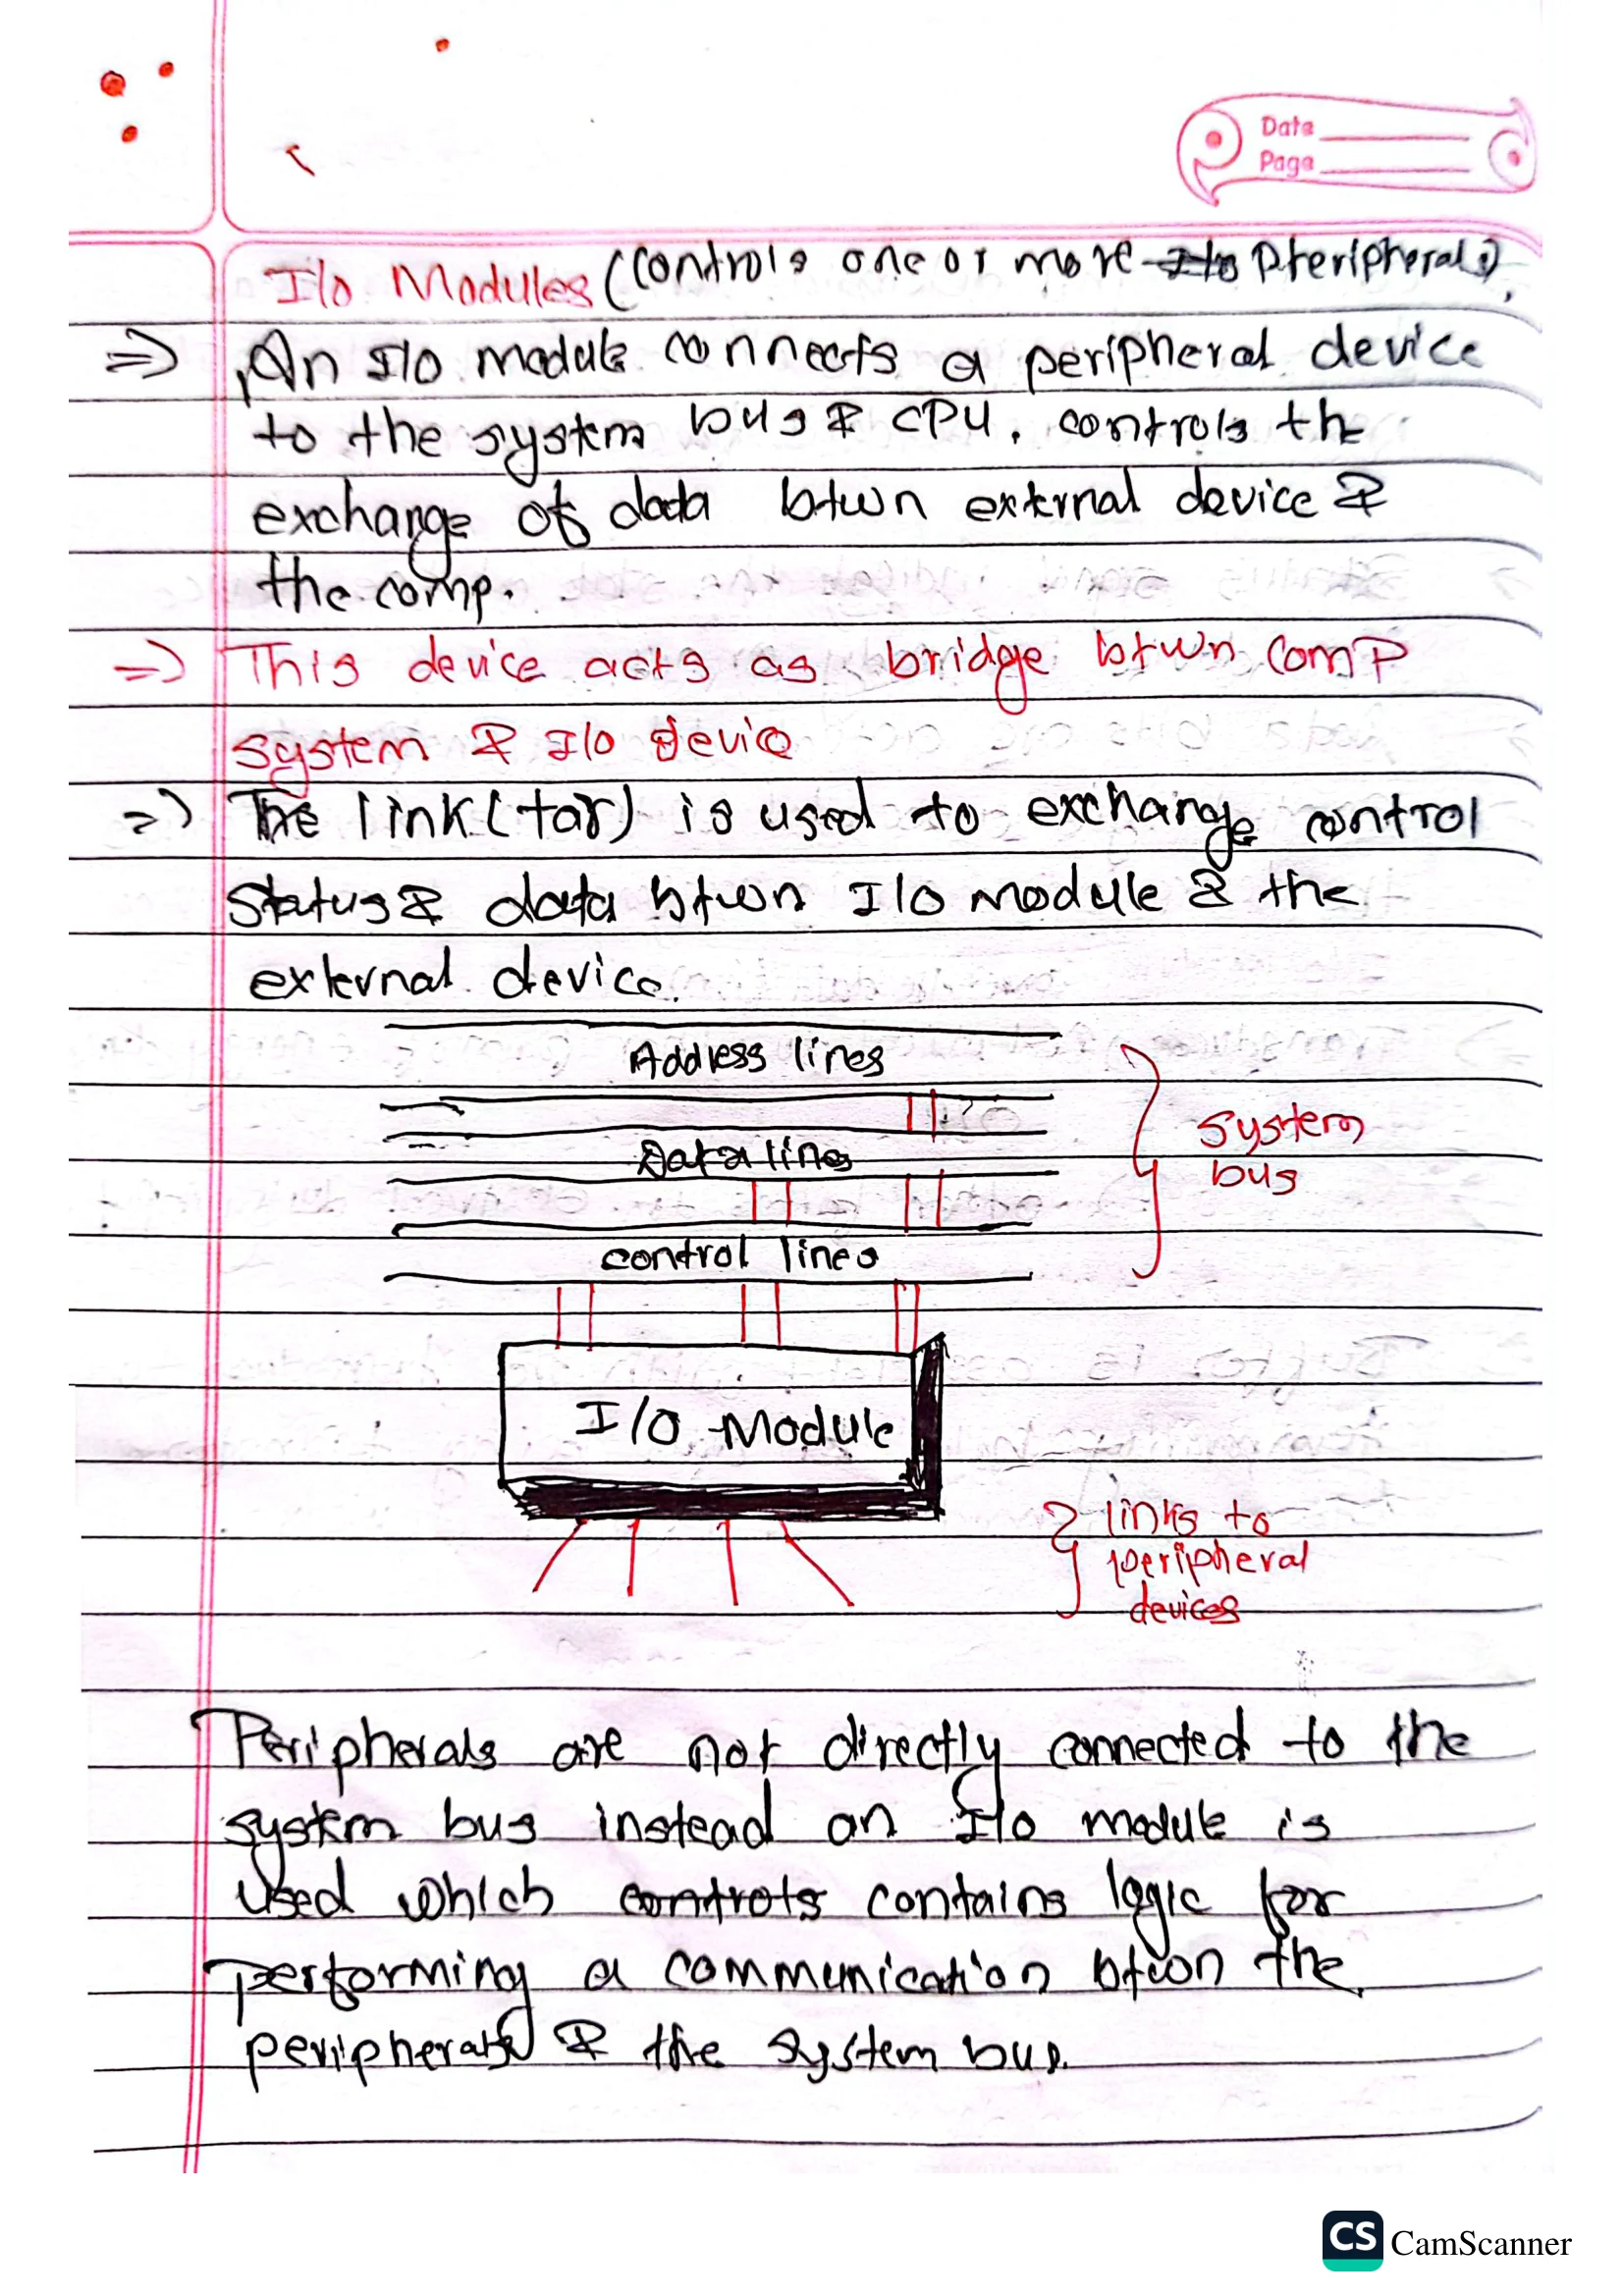 Date
Page
I/o Modules (controls one or more Pteripherals)
=> An I/O module connects a peripheral device
to the system bus & CPU. controls the
exchange of data btwn external device &
the comp.
=> This device acts as bridge btwn comp
system & I/o device
=> The link (tar) is used to exchange control
status & data btwn I/O module & the
external device.
Address lines
Data lines
system
bus
control lines
I/O Module
links to
peripheral
devices
Peripherals are not directly connected to the
system bus instead an I/o module is
used which controls contains logic for
performing a communication btwn the
peripherals & the system bus.
CS CamScanner